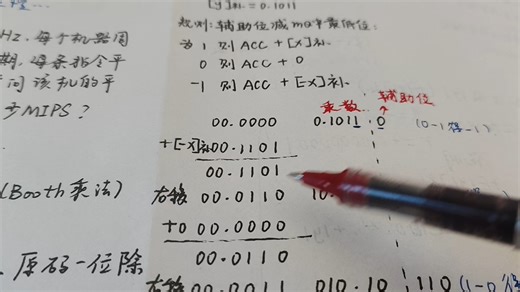 [y]补 = 0.1011
规则: 辅助位减 MQ中最低位:
为 1 则 ACC + [x]补
0 则 ACC + 0
-1 则 ACC + [-x]补
Hz. 每个机器周
期, 每条指令平
问该机的平
少MIPS?
乘数 辅助位
00.0000 0.1011 0 (0-1得-1)
+[-x]补 00.1101
00.1101
(Booth乘法)
右移 00.0110 10.
+0 00.0000
00.0110
原码一位除
右移 00.0011 010.10 110 (1-0得